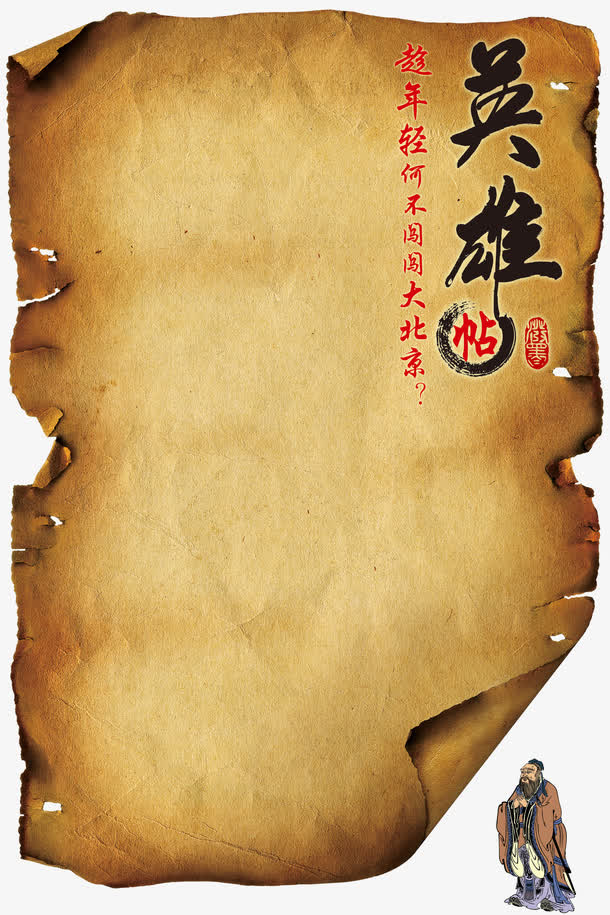 英雄帖
趁年轻何不闯闯大北京？